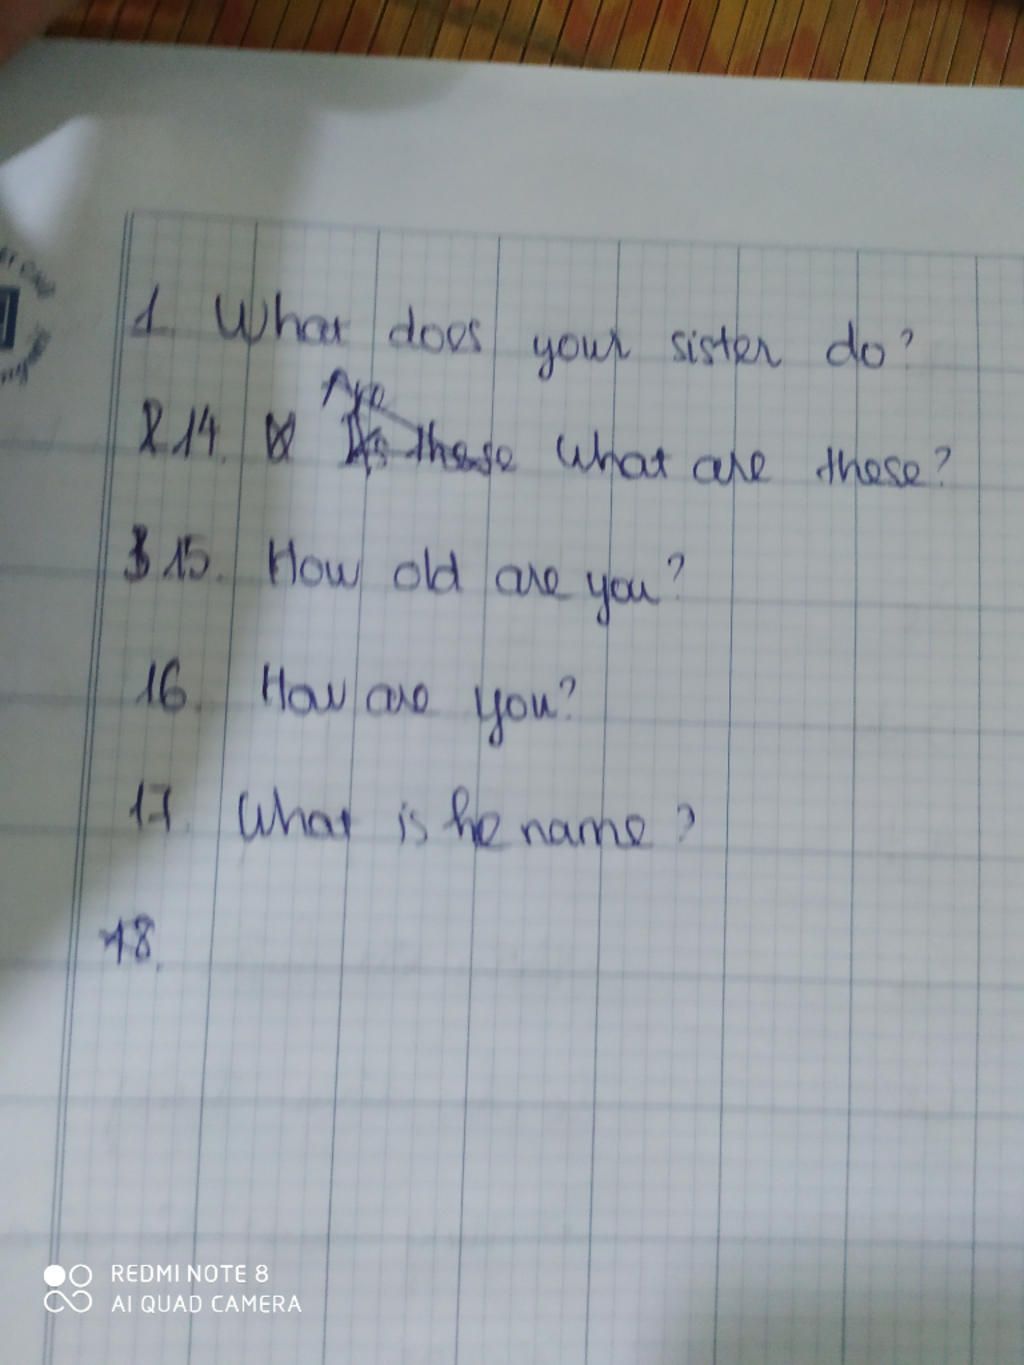 1. What does your sister do?
Are
14. Is these What are these?
15. How old are you?
16. How are you?
17. What is he name?
18.
REDMI NOTE 8
AI QUAD CAMERA